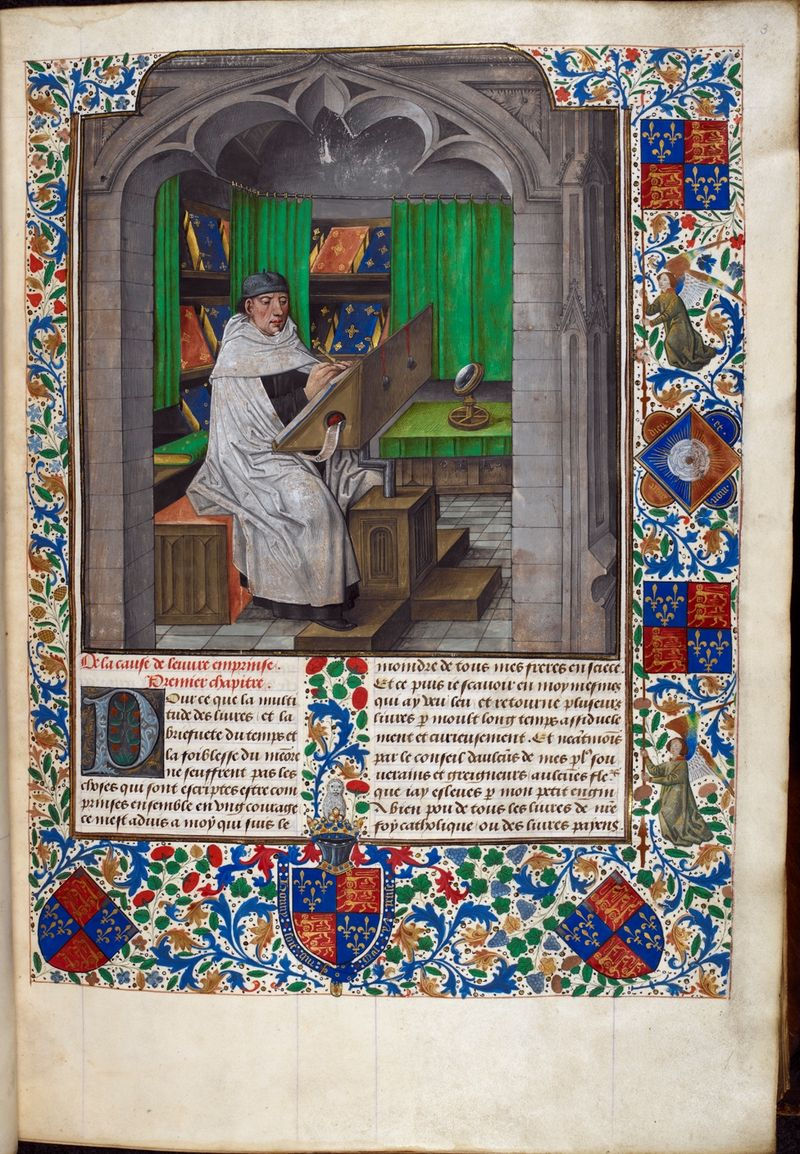 3
De la cause de leuure emprinse.
Premier chapitre.
Pour ce que la multi
tude des liures et la
briefuete du temps et
la foiblesse du memore
ne seuffrent pas les
choses qui sont escriptes estre com
prinses ensemble en ung courage
ce mest aduis a moy qui suis le
moindre de tous mes freres en sciece
Et ce puis ie scauoir en moy mesmes
qui ay veu leu et retourne pluseurs
liures p moult long temps assiduele
ment et curieusement. Et neatmois
par le conseil daulcuns de mes pl sou
uerains et greigneurs aulcunes fle
que iay esleues p mon petit engin
A bien pou de tous les liures de nre
foy catholique ou des liures payens
dieu et